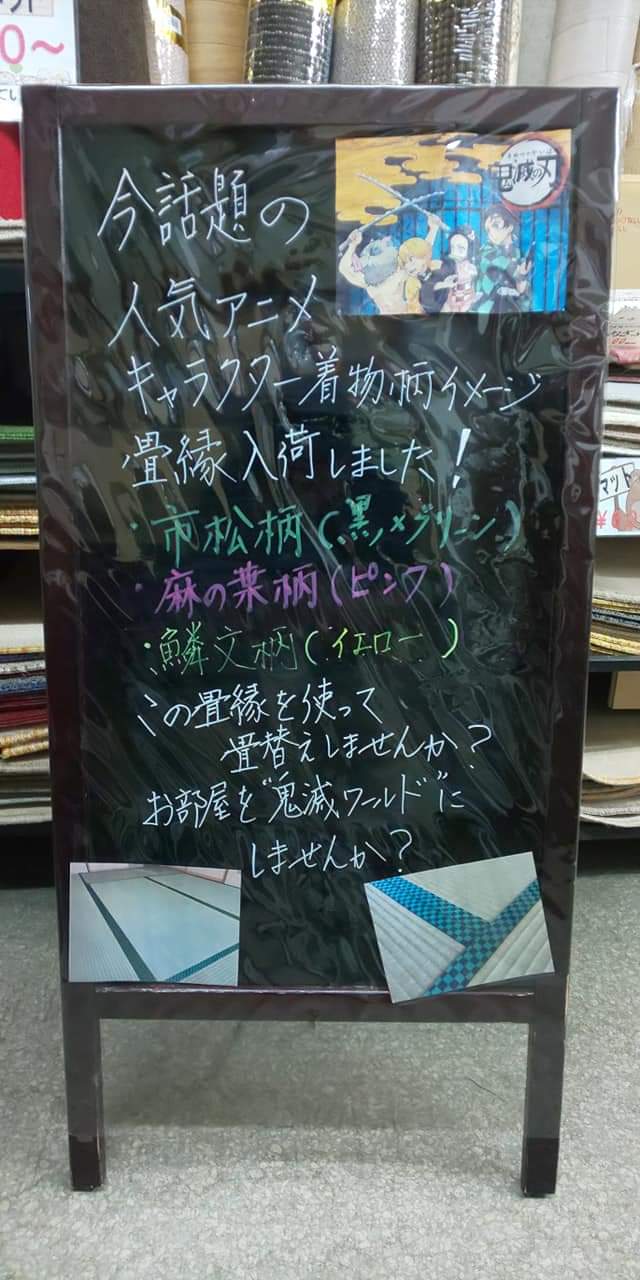 今話題の
人気アニメ
キャラクター着物柄イメージ
畳縁入荷しました!
・市松柄(黒×グリーン)
・麻の葉柄(ピンク)
・鱗文柄(イエロー)
この畳縁を使って
畳替えしませんか?
お部屋を"鬼滅ワールド"に
しませんか?
きめつのやいば
鬼滅の刃
0〜
マット